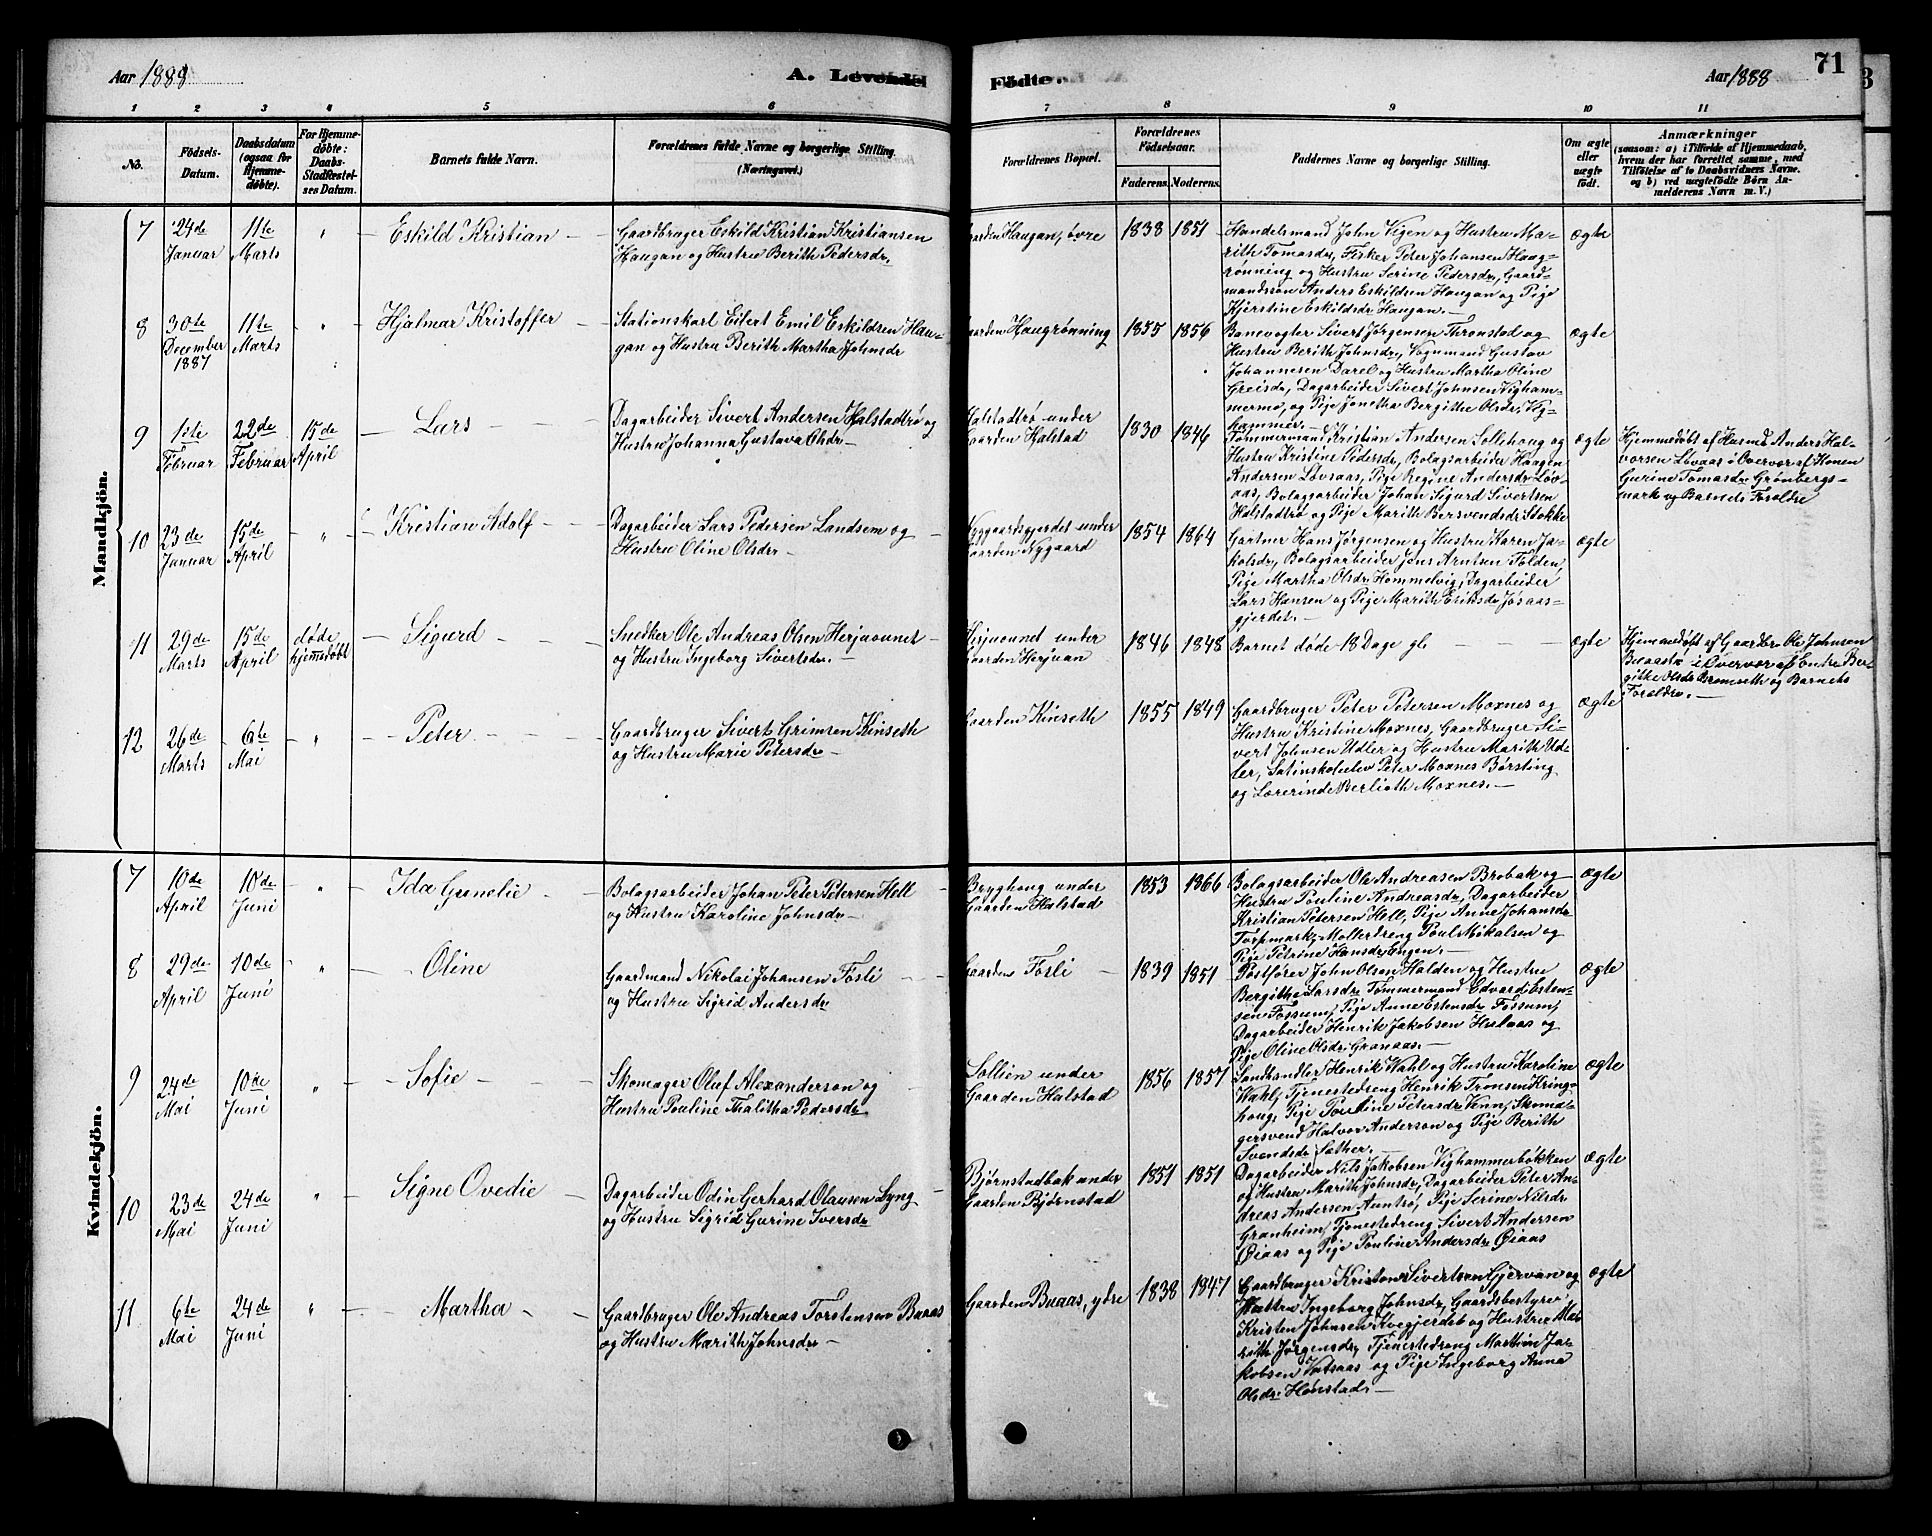 Aar 1888
A. Levende
Fødte.
Aar 1888
71
1 2 3 4 5 6 7 8 9 10 11
No.
Fødsels-Datum.
Daabsdatum (ogsaa for Hjemmedøbte).
For Hjemmedøbte: Daabs-Stadfæstelses Datum.
Barnets fulde Navn.
Forældrenes fulde Navne og borgerlige Stilling.
(Næringsvei.)
Forældrenes Bopæl.
Forældrenes Fødselsaar.
Faderens. Moderens.
Faddernes Navne og borgerlige Stilling.
Om ægte eller uægte født.
Anmærkninger
(saasom: a) i Tilfælde af Hjemmedaab, hvem der har forrettet samme, med Tilføielse af to Daabsvidners Navne, og b) ved uægtefødte Børn Anmelderens Navn m. V.)
Mandkjøn.
7 24de Januar 11te Marts " Eskild Kristian
Gaardbruger Eskild Kristian Kristiansen
Haugan og Hustru Berith Pedersdr.
Gaarden Haugan, øvre 1838 1851
Handelsmand John Vigen og Hustru Ma-
rith Tomasdr, Fisker Peter Johansen Haug-
rønning og Hustru Serine Pedersdr, Gaard-
mandssøn Anders Eskildsen Haugan og Pige
Kjerstine Eskildsdr Haugan.
ægte
8 30te December 1887 11te Marts " Hjalmar Kristoffer
Stationskarl Eilert Emil Eskildsen Hau-
gan og Hustru Berith Martha Johnsdr
Gaarden Haugrønning 1855 1856
Banevogter Sivert Jørgensen Thronstad og
Hustru Berith Johnsdr, Vognmand Gustav
Johannesen Darel og Hustru Martha Oline
Greisdr, Dagarbeider Sivert Johnsen Vigham-
mermo, og Pige Jonetha Bergithe Olsdr. Vig-
hammer.
ægte
9 1ste Februar 22de Februar 15de April Lars
Dagarbeider Sivert Andersen Halstadtrø og
Hustru Johanna Gustava Olsdr
Halstadtrø under
Gaarden Halstad 1830 1846
Tømmermand Kristian Andersen Sollihoug og
Hustru Kristine Pedersdr, Bolagsarbeider Haagen
Andersen Løvaas, Pige Regine Andersdr Løv-
aas, Bolagsarbeider Johan Sigurd Sivertsen
Halstadtrø og Pige Marith Bersvendsdr Stokke
ægte
Hjemmedøbt af Husmd Anders Hal-
vorsen Løvaas i Overvær af Konen
Gurine Tomasdr Grønbergs-
mark og Barnets Forældre
10 23de Januar 15de April " Kristian Adolf
Dagarbeider Lars Pedersen Landsem og
Hustru Oline Olsdr
Nygaardsgjerdet under
Gaarden Nygaard 1854 1864
Gartner Hans Jørgensen og Hustru Karen Ja-
kolsdr, Bolagsarbeider Jens Arntsen Folden,
Pige Martha Olsdr Hommelvig, Dagarbeider
Lars Hansen og Pige Marith Eriksdr Jøsaas-
gjerdet.
ægte
11 29de Marts 15de April døde hjemedøbt Sigurd
Snedker Ole Andreas Olsen Herjuvunet
og Hustru Ingeborg Sivertsdr.
Herjuvunet under
Gaarden Herjuan 1846 1848
Barnet døde 18 Dage gl.
ægte
Hjemmedøbt af Gaardbr Ole Johnsen
Buaasta i Overvær af Enke Ber-
githe Olsdr Bremseth og Barnets
Forældre.
12 26de Marts 6te Mai " Peter
Gaardbruger Sivert Grimsen Kinseth
og Hustru Marie Petersdr
Gaarden Kinseth 1855 1849
Gaardbruger Peter Petersen Moxnes og
Hustru Kristine Moxnes, Gaardbruger Si-
vert Johnsen Udler og Hustru Marith Ud-
ler, Latinskoleelev Peter Moxnes Børsting
og Lærerinde Berlioth Moxnes.
ægte
Kvindekjøn.
7 10de April 10de Juni " Ida Gunelie
Bolagsarbeider Johan Peter Petersen Hell
og Hustru Karoline Johnsdr
Bryghoug under
Gaarden Halstad 1853 1866
Bolagsarbeider Ole Andreasen Brobak og
Hustru Pouline Andreasdr, Dagarbeider
Kristian Petersen Hell, Pige Anne Johansdr
Torpmark, Møllerdreng Poul Mikalsen og
Pige Petrine Hansdr Engen.
ægte
8 29de April 10de Juni " Oline
Gaardmand Nikolai Johansen Fosli
og Hustru Sigrid Andersdr
Gaarden Fosli 1839 1851
Postfører John Olsen Halden og Hustru
Bergitha Larsdr, Tømmermand Edvard Esten-
sen Fossum, Pige Anne Estensdr Fossum,
Dagarbeider Henrik Jakobsen Hulaas og
Pige Oline Olsdr Granaas.
ægte
9 24de Mai 10de Juni " Sofie
Skomager Oluf Alexanderson og
Hustru Pouline Thalitha Pedersdr
Sollien under
Gaarden Halstad 1856 1857
Landhandler Henrik Wahl og Hustru Karoline
Wahl, Tjenestedreng Henrik Tronsen Kring-
houg, Pige Pouline Petersdr Venn, Skoma-
gersvend Halvor Anderson og Pige Berith
Svendsdr Sæther.
ægte
10 23de Mai 24de Juni " Signe Ovedie
Dagarbeider Odin Gerhard Olausen Lyng
og Hustru Sigrid Gurine Iversdr
Bjørnstadbak under
Gaarden Bjørnstad 1851 1851
Dagarbeider Nils Jakobsen Vighammerbøkken
og Hustru Marith Johnsdr, Dagarbeider Peter An-
dreas Andersen Auntrø, Pige Serine Nilsdr
Granheim, Tjenestedreng Sivert Andersen
Øiaas og Pige Pouline Andersdr Øiaas
ægte
11 6te Mai 24de Juni " Martha
Gaardbruger Ole Andreas Torstensen Buaas
og Hustru Marith Johnsdr
Gaarden Buaas, ydre 1838 1847
Gaardbruger Kristen Sivertsen Gjervan og
Hustru Ingeborg Johnsdr, Gaardsbestyrer
Kristen Johnsen Kvegjerdet og Hustru Ma-
rith Jørgensdr, Tjenestedreng Martin Ja-
kobsen Vatsaas og Pige Ingeborg Anna
Olsdr Hønstad.
ægte